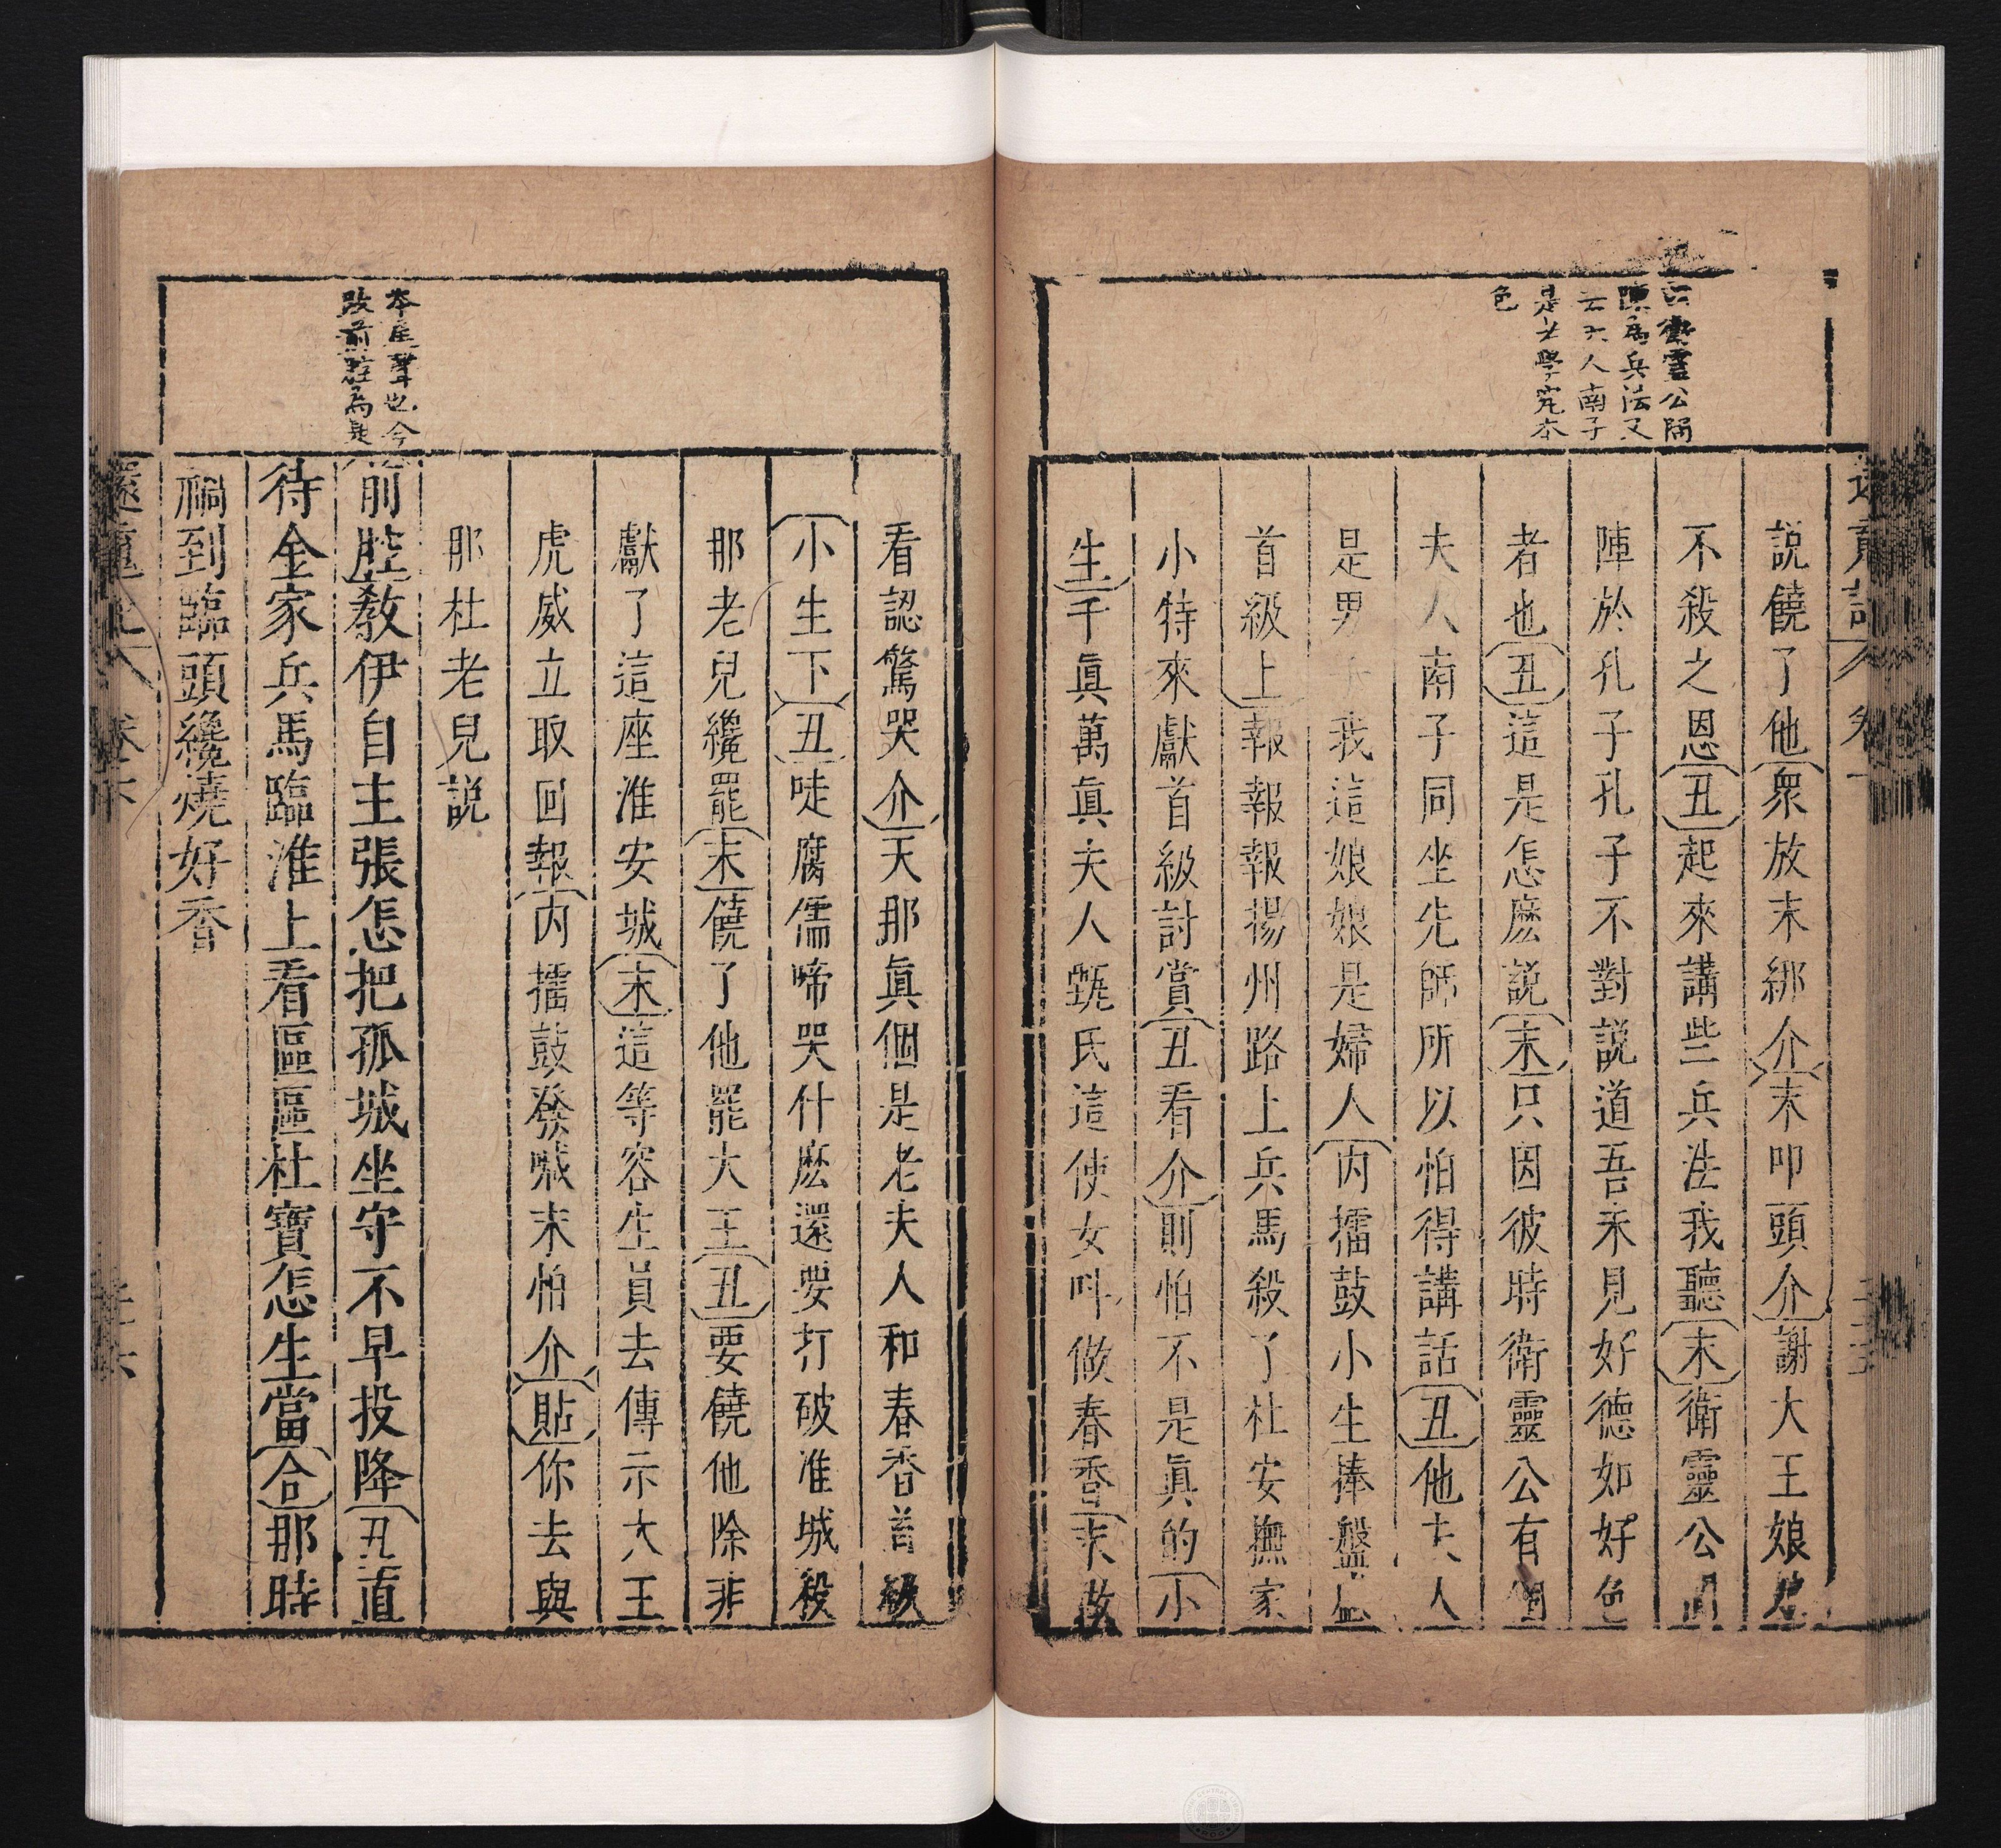 衛靈公問
陳為兵法又
云夫人南子
是老學究本
色
說饒了他衆放末綁介末叩頭介謝大王娘娘
不殺之恩丑起來講些兵法我聽末衛靈公問
陣於孔子孔子不對說道吾未見好德如好色
者也丑這是怎麽說末只因彼時衛靈公有個
夫人南子同坐先師所以怕得講話丑他夫人
是男 我這娘娘是婦人內擂鼓小生捧盤
首級上報報報揚州路上兵馬殺了杜安撫家
小特來獻首級討賞丑看介則怕不是眞的小
生千眞萬眞夫人甄氏這使女呌做春香末做
看認驚哭介天那眞個是老夫人和春香首級
小生下丑唗腐儒啼哭什麽還要打破淮城殺
那老兒纔罷末饒了他罷大王丑要饒他除非
獻了這座淮安城末這等容生員去傳示大王
虎威立取回報內擂鼓發喊末怕介貼你去與
那杜老兒說
本 聲也今
改前腔為是
前腔教伊自主張怎把孤城坐守不早投降丑直
待金家兵馬臨淮上看區區杜寶怎生當合那時
禍到臨頭纔燒好香
還魂記 卷下